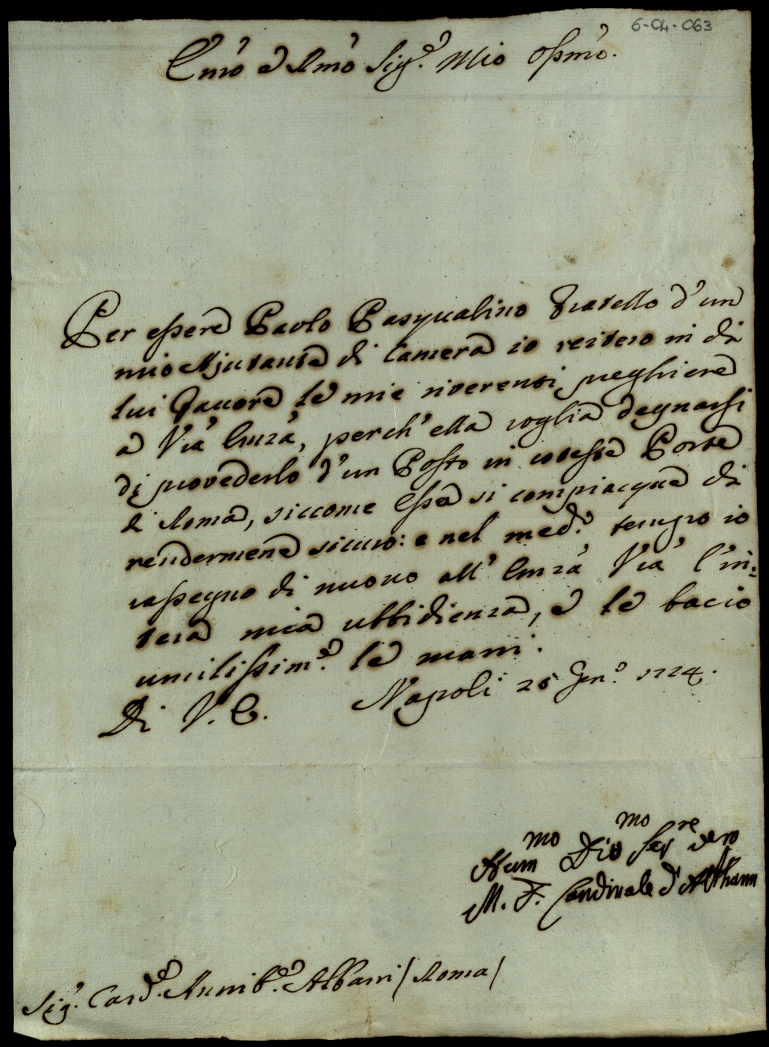 6-04-063
Em̃o e Rm̃o Sig.r Mio Oss̃mo.
Per essere Paolo Pasqualino Fratello d'un
mio Ajutante di Camera io reitero in di
lui favore le mie riverenti preghiere
a V'ra Em̃za, perch'ella voglia degnarsi
di provederlo d'un Posto in coteste Porte
di Roma, siccome essa si compiacque di
rendermene sicuro: e nel med.o tempo io
rassegno di nuovo all' Em̃za V'ra l'in:
tera mia ubbidienza, e le bacio
umilissim.e le mani.
Di V. E. Napoli 25 Gen.o 1724.
Hum.mo Div.mo Ser.re vero
M. F. Cardinale d'Althann
Sig.r Card.e Annib.e Albani / Roma /